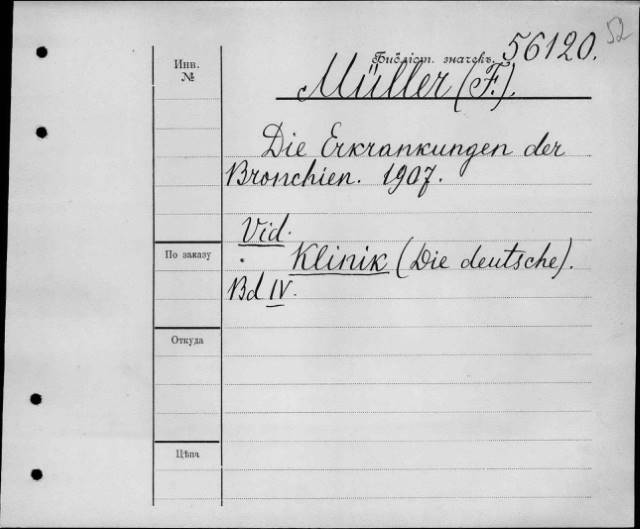 52
Инв. №
Библіот. значекъ. 56120.
Müller (F.).
Die Erkrankungen der
Bronchien. 1907.
Vid.
По заказу
Klinik (Die deutsche).
Bd IV.
Откуда
Цѣна